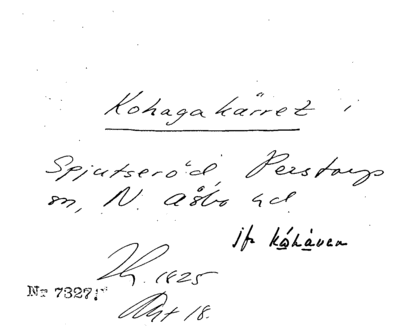 Kohagakärret
Spjutseröd, Perstorps
sn, N. Åsbo hd
jfr kåhàven
Lg. 1825
Akt 18.
No 7327: